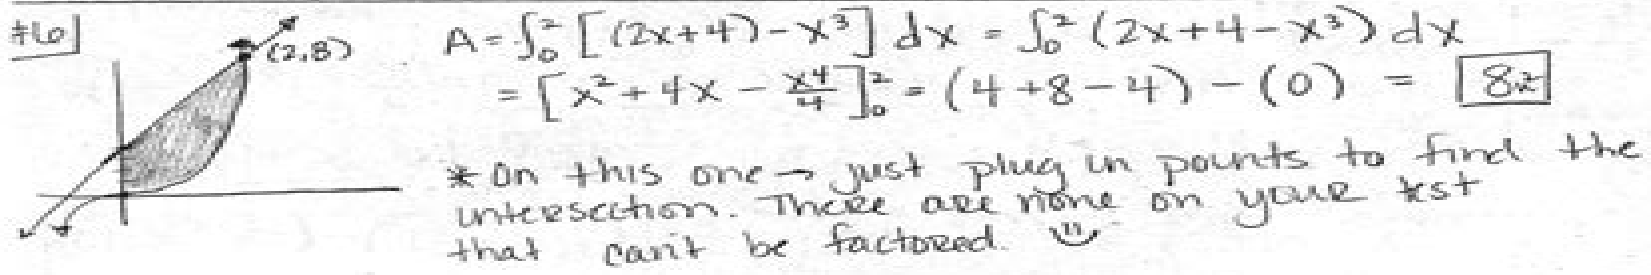 #6
(2,8)
A = ∫₀² [(2x+4) - x³] dx = ∫₀² (2x+4-x³) dx
= [x² + 4x - x⁴/4]₀² = (4+8-4) - (0) = 8
* On this one → just plug in points to find the
intersection. There are none on your test
that can't be factored.